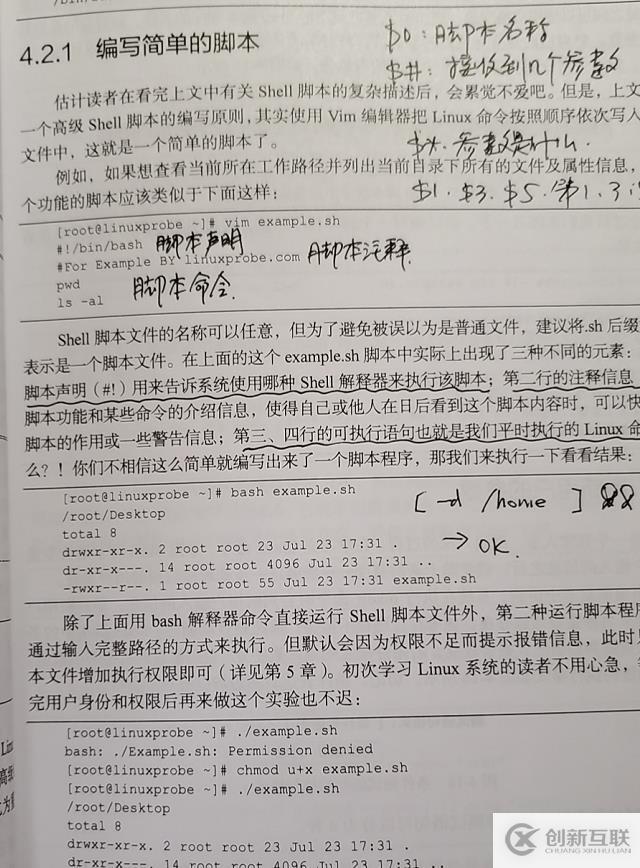 4.2.1 编写简单的脚本
$0：脚本名称
$#：接收到几个参数
估计读者在看完上文中有关 Shell 脚本的复杂描述后，会累觉不爱吧。但是，上文
一个高级 Shell 脚本的编写原则，其实使用 Vim 编辑器把 Linux 命令按照顺序依次写入
文件中，这就是一个简单的脚本了。
$*：参数是什么.
例如，如果想查看当前所在工作路径并列出当前目录下所有的文件及属性信息，
$1. $3. $5. 第1. 3
个功能的脚本应该类似于下面这样：
[root@linuxprobe ~]# vim example.sh
#!/bin/bash 脚本声明
#For Example BY linuxprobe.com 脚本注释
pwd
ls -al 脚本命令.
Shell 脚本文件的名称可以任意，但为了避免被误以为是普通文件，建议将.sh 后缀
表示是一个脚本文件。在上面的这个 example.sh 脚本中实际上出现了三种不同的元素：
脚本声明（#!）用来告诉系统使用哪种 Shell 解释器来执行该脚本；第二行的注释信息
脚本功能和某些命令的介绍信息，使得自己或他人在日后看到这个脚本内容时，可以快
脚本的作用或一些警告信息；第三、四行的可执行语句也就是我们平时执行的 Linux 命
么？！你们不相信这么简单就编写出来了一个脚本程序，那我们来执行一下看看结果：
[root@linuxprobe ~]# bash example.sh
/root/Desktop
[ -d /home ] &&
total 8
drwxr-xr-x. 2 root root 23 Jul 23 17:31 .
→ OK.
dr-xr-x---. 14 root root 4096 Jul 23 17:31 ..
-rwxr--r--. 1 root root 55 Jul 23 17:31 example.sh
除了上面用 bash 解释器命令直接运行 Shell 脚本文件外，第二种运行脚本程序
通过输入完整路径的方式来执行。但默认会因为权限不足而提示报错信息，此时只
本文件增加执行权限即可（详见第 5 章）。初次学习 Linux 系统的读者不用心急，等
完用户身份和权限后再来做这个实验也不迟：
[root@linuxprobe ~]# ./example.sh
bash: ./Example.sh: Permission denied
[root@linuxprobe ~]# chmod u+x example.sh
[root@linuxprobe ~]# ./example.sh
/root/Desktop
total 8
drwxr-xr-x. 2 root root 23 Jul 23 17:31 .
dr-xr-x---. 14 root root 4096 Jul 23 17:31 ..
创新互联
CHUANG XIN HU LIAN